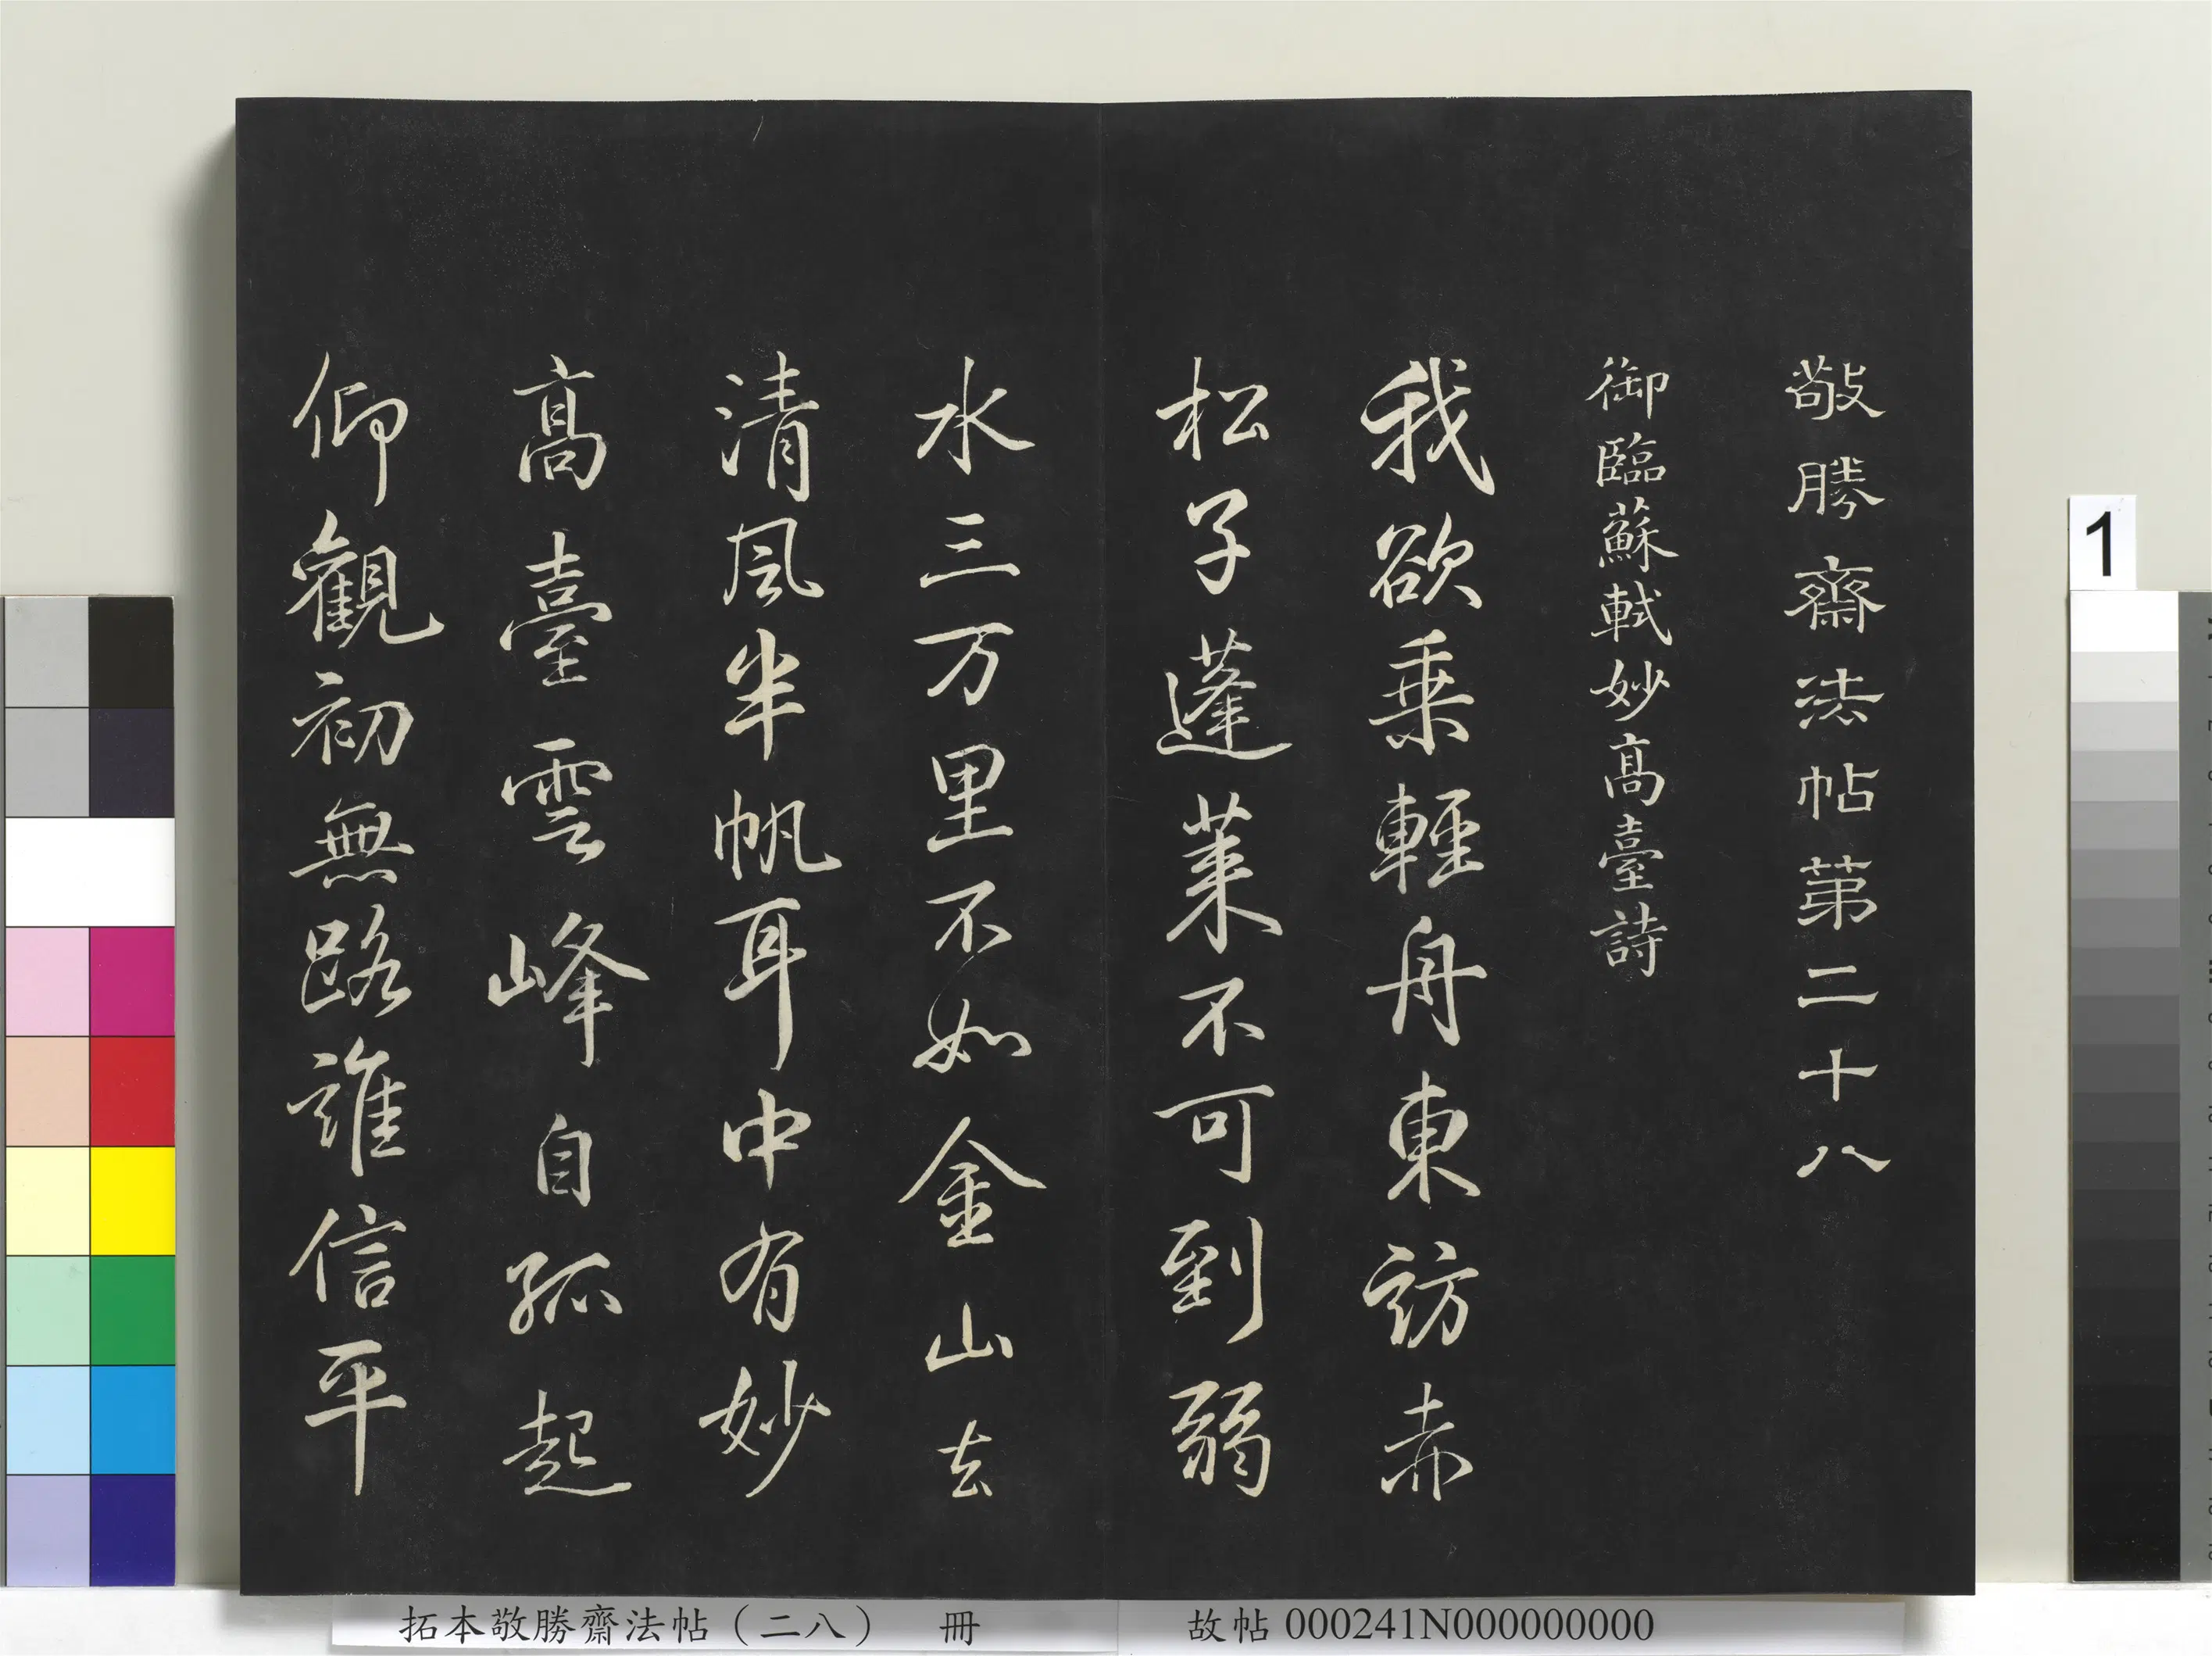 敬勝齋法帖第二十八
御臨蘇軾妙高臺詩
我欲乗輕舟東訪赤
松子蓬萊不可到弱
水三万里不如金山去
清風半帆耳中有妙
髙臺雲峰自孤起
仰觀初無路誰信平
拓本敬勝齋法帖（二八） 冊
故帖 000241N000000000
1